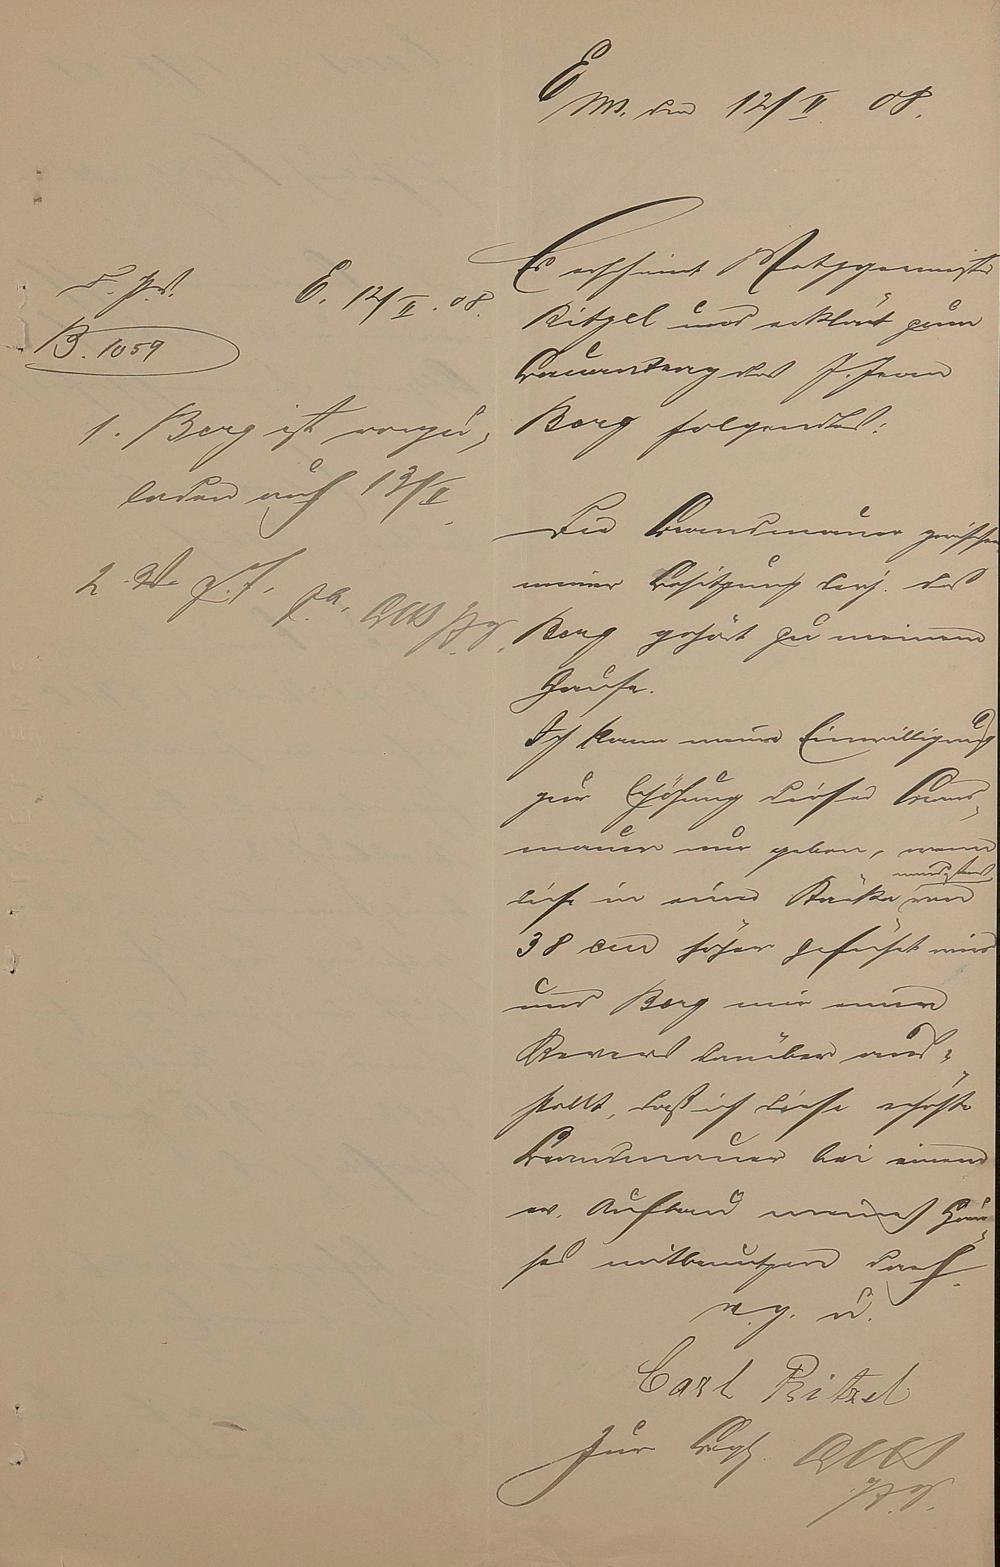 Ems, den 12/II 08.
Es erscheint Metzgermeister
Ritzel und erklärt zum
Bauantrag des J. Jean
Berg folgendes:
Die Brandmauer zwischen
meiner Besitzung bezj. des
Berg gehört zu meinem
Hause.
Ich kann meine Einwilligung
zur Erhöhung dieser Brand-
mauer nur geben, wenn
diese in einer Stärke mindestens von
38 cm höher geführt wird
und Berg mir einen
Revers darüber aus-
stellt, daß ich diese erhöhte
Brandmauer bei einem
ev. Aufbau meines Hau-
ses mitbenutzen darf.
v. g. u.
Carl Ritzel
Zur Begl.
E. 12/II. 08.
B. 1059
1. Berg ist vorzu-
laden auf 13/II.
2